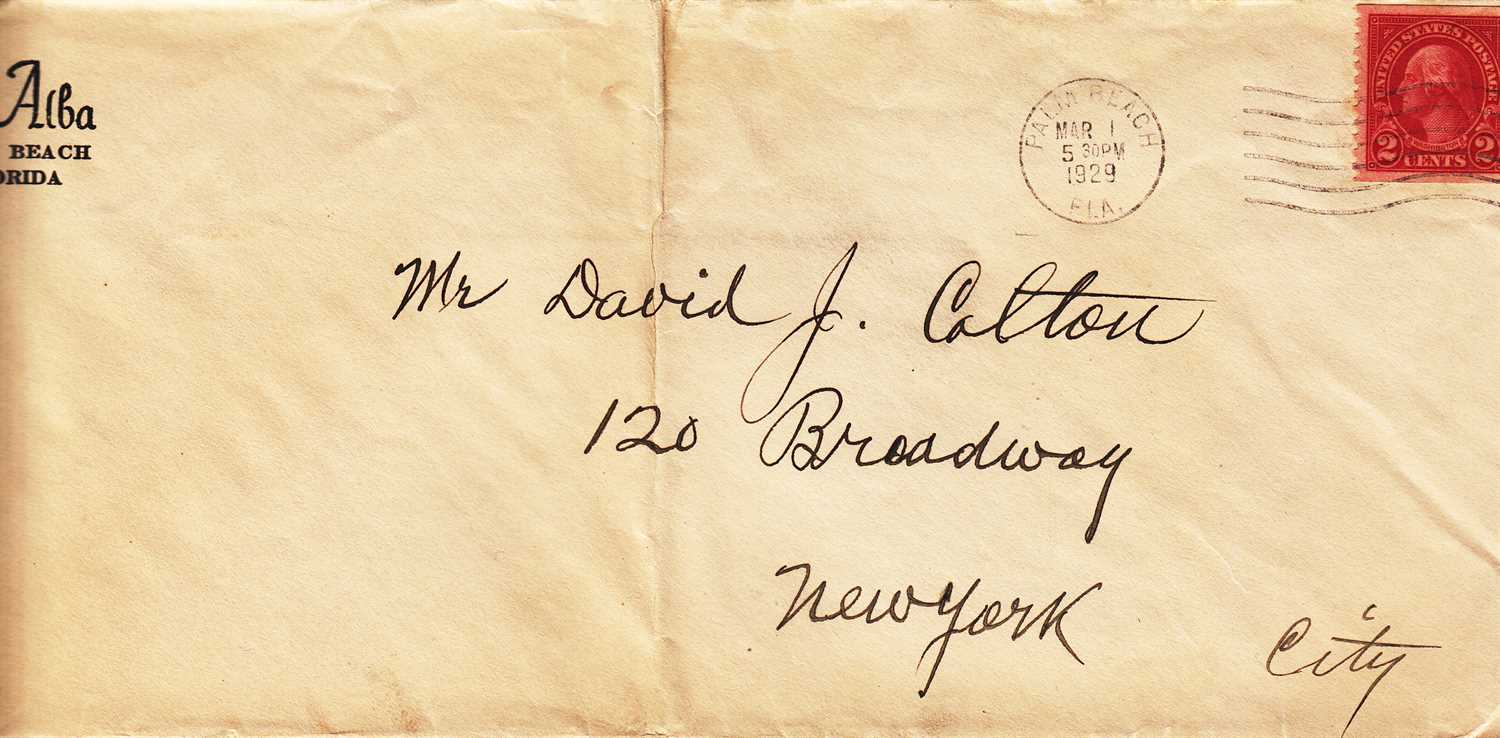 Alba
BEACH
ORIDA
PALM BEACH
MAR 1
5 30PM
1929
FLA.
UNITED STATES POSTAGE
WASHINGTON
2 CENTS 2
Mr David J. Colton
120 Broadway
New York
City